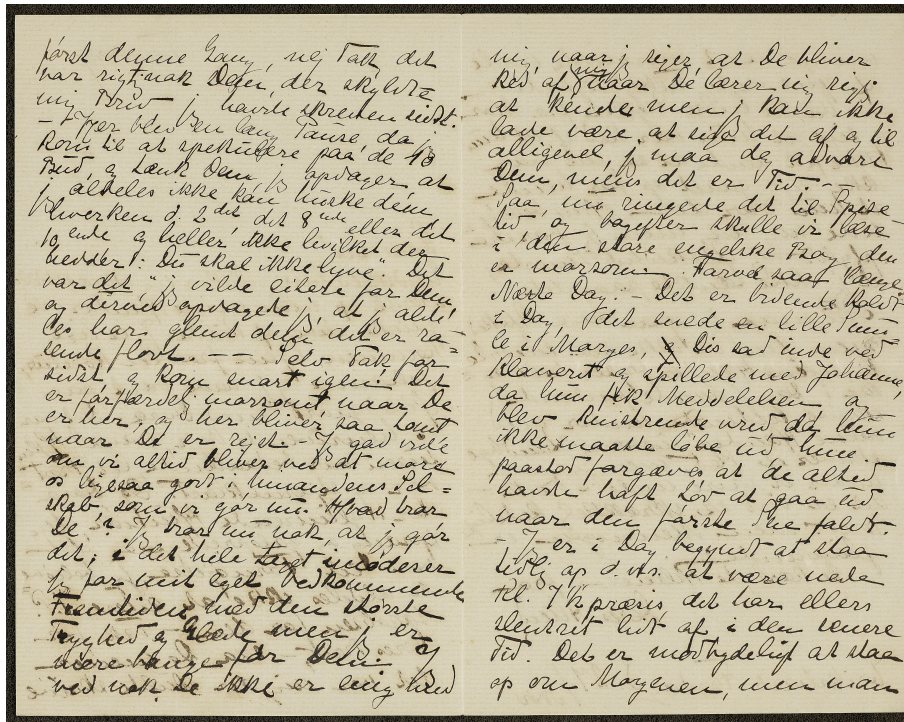 først denne Gang, nej Tak, det
var rigt nok Dem, der skyldte
mig Brev j havde skreven sidst.
- Her blev en lang Pause da j
kom til at spekulere paa de 10
Bud, og tænk Dem j opdager at
j aldeles ikke kan huske dem
hverken d. 2det det 8ende eller det
10ende og heller ikke hvilket der
hedder: "Du skal ikke lyve". Det
var det j vilde citere for Dem
og derved opdagede j, at j alde=
les har glemt dem, det er ra=
sende flovt. — Selv Tak for
sidst og kom snart igen! Det
er forfærdelig morsomt naar De
er her, og her bliver saa tomt
naar De er rejst. - J gad vide
om vi altid bliver ved at more
os ligesaa godt i hinandens Sel=
skab, som vi gør nu. Hvad tror
De? J tror nu nok, at j gør
det; i det hele taget imøderer
j for mit eget Vedkommende
Fremtiden med den største
Tryghed og Glæde men j er
mere bange for Dem. J
ved nok De ikke er enig med
mig, naar j siger at De bliver
ked af mig naar De lærer mig rigtig
at kende men j kan ikke
lade være at sige det af og til
alligevel, j maa dog advare
Dem, mens det er Tid. —
Saa nu ringede det til Spise-
tid, og bagefter skulle vi læse
i den store engelske Bog, den
er morsom. Farvel saa længe
Næste Dag. - Det er bidende koldt
i Dag, det sneede en lille Smu
le i Morges, og Dis sad inde ved
Klaveret og spillede med Johanne,
da hun fik Meddelelsen og
blev knistrende vred da hun
ikke maatte løbe ud hun
paastod forgæves at de altid
havde haft Lov at gaa ud
naar den første Sne faldt.
- J er i Dag begyndt at staa
tidlig op d.v.s. at være nede
Kl. 7½ præcis det har ellers
slentret lidt af i den senere
Tid. Det er modbydeligt at staa
op om Morgenen, men man